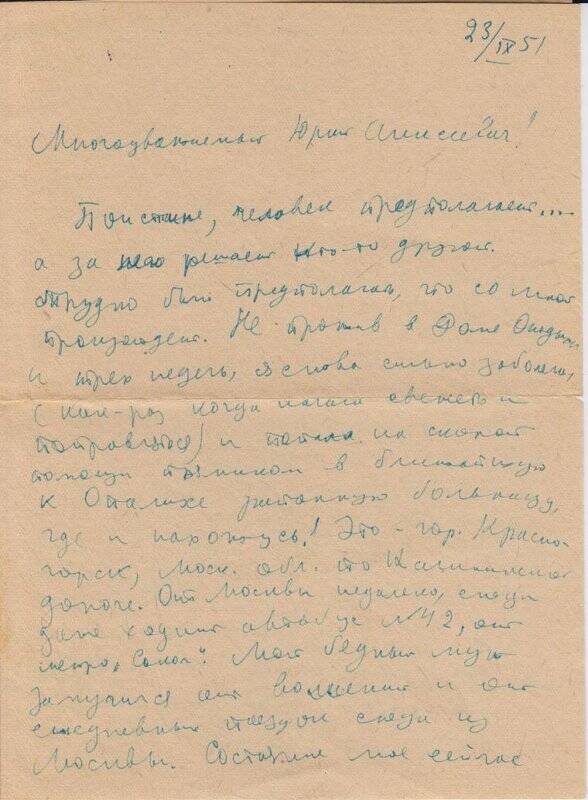 23/IX 51
Многоуважаемый Юрий Алексеевич!
Поистине, человек предполагает...
а за него решает кто-то другой.
Трудно было предполагать, что со мной
произойдет. Не прожив в Доме Отдыха
и трех недель, я снова сильно заболела,
(как-раз когда начала свежеть и
поправляться) и попала на скорой
помощи прямиком в ближайшую
к Опалихе районную больницу,
где и нахожусь! Это – гор. Красно-
горск, Моск. обл. по Калининской
дороге. От Москвы недалеко, сюда
даже ходит автобус №42, от
метро "Сокол". Мой бедный муж
замучился от волнений и от
ежедневных поездок сюда из
Москвы. Состояние мое сейчас